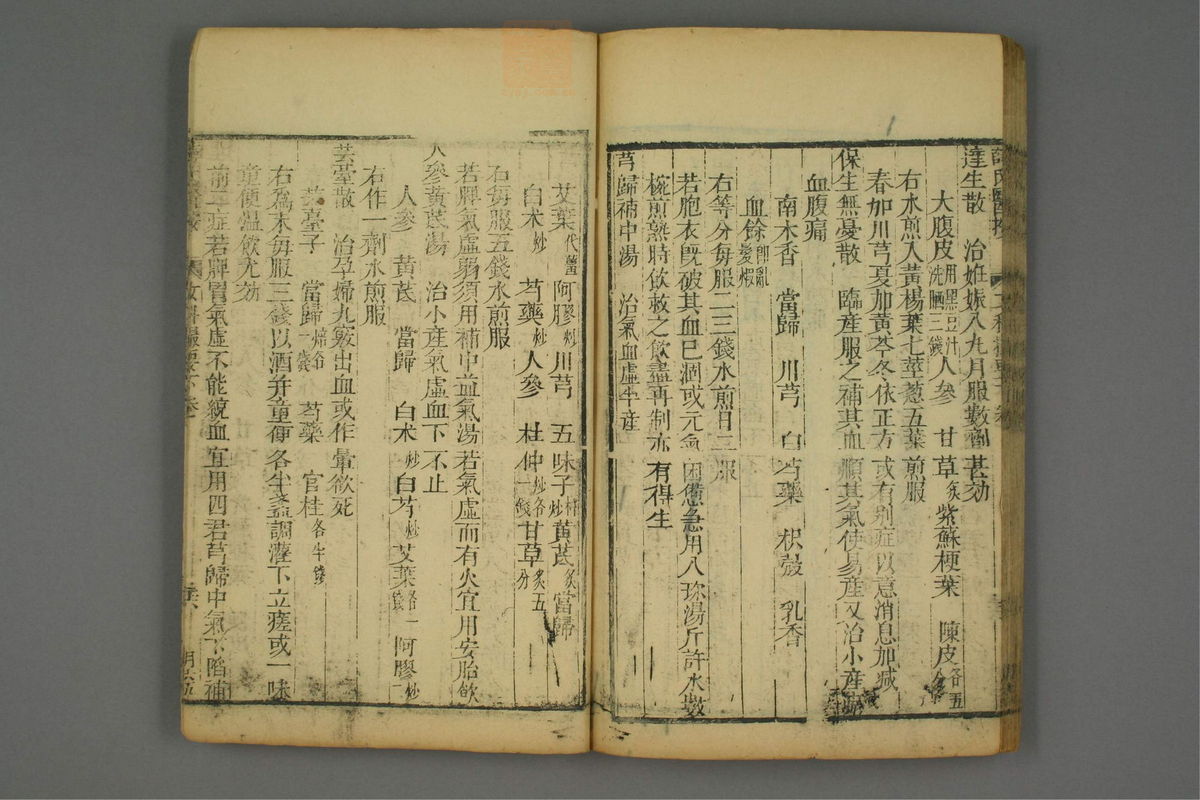 達生散　治妊娠八九月服數劑甚効
大腹皮用黑豆汁洗晒三錢人參　甘草炙紫蘇梗葉　陳皮各五分
右水煎入黃楊葉七莖葱五葉煎服
春加川芎夏加黃芩冬依正方或有别症以意消息加减
保生無憂散　臨産服之補其血順其氣使易産又治小産瘀
血腹痛
南木香　當歸　川芎　白芍藥　枳殻　乳香
血餘即亂髮煆
右等分每服二三錢水煎日二服
若胞衣既破其血已涸或元氣困憊急用八珍湯斤許水數
椀煎熟時飲救之飲盡再制亦有得生
芎歸補中湯　治氣血虛半産
艾葉代薑　阿膠炒　川芎　五味子杵炒黄芪炙當歸
白术炒　芍藥炒人參　杜仲炒各一錢甘草炙五分
右每服五錢水煎服
若脾氣虛弱須用補中益氣湯若氣虛而有火宜用安胎飲
人參黃芪湯　治小産氣虛血下不止
人參　黃芪　當歸　白术炒白芍炒艾葉各一錢　阿膠炒二
右作一劑水煎服
芸薹散　治孕婦九竅出血或作暈欲死
芸薹子　當歸焙各一錢　芍藥　官桂各半錢
右爲末每服三錢以酒并童便各半盞調灌下立瘥或一味
童便温飲尤効
前二症若脾胃氣虛不能統血宜用四君芎歸中氣下陷補